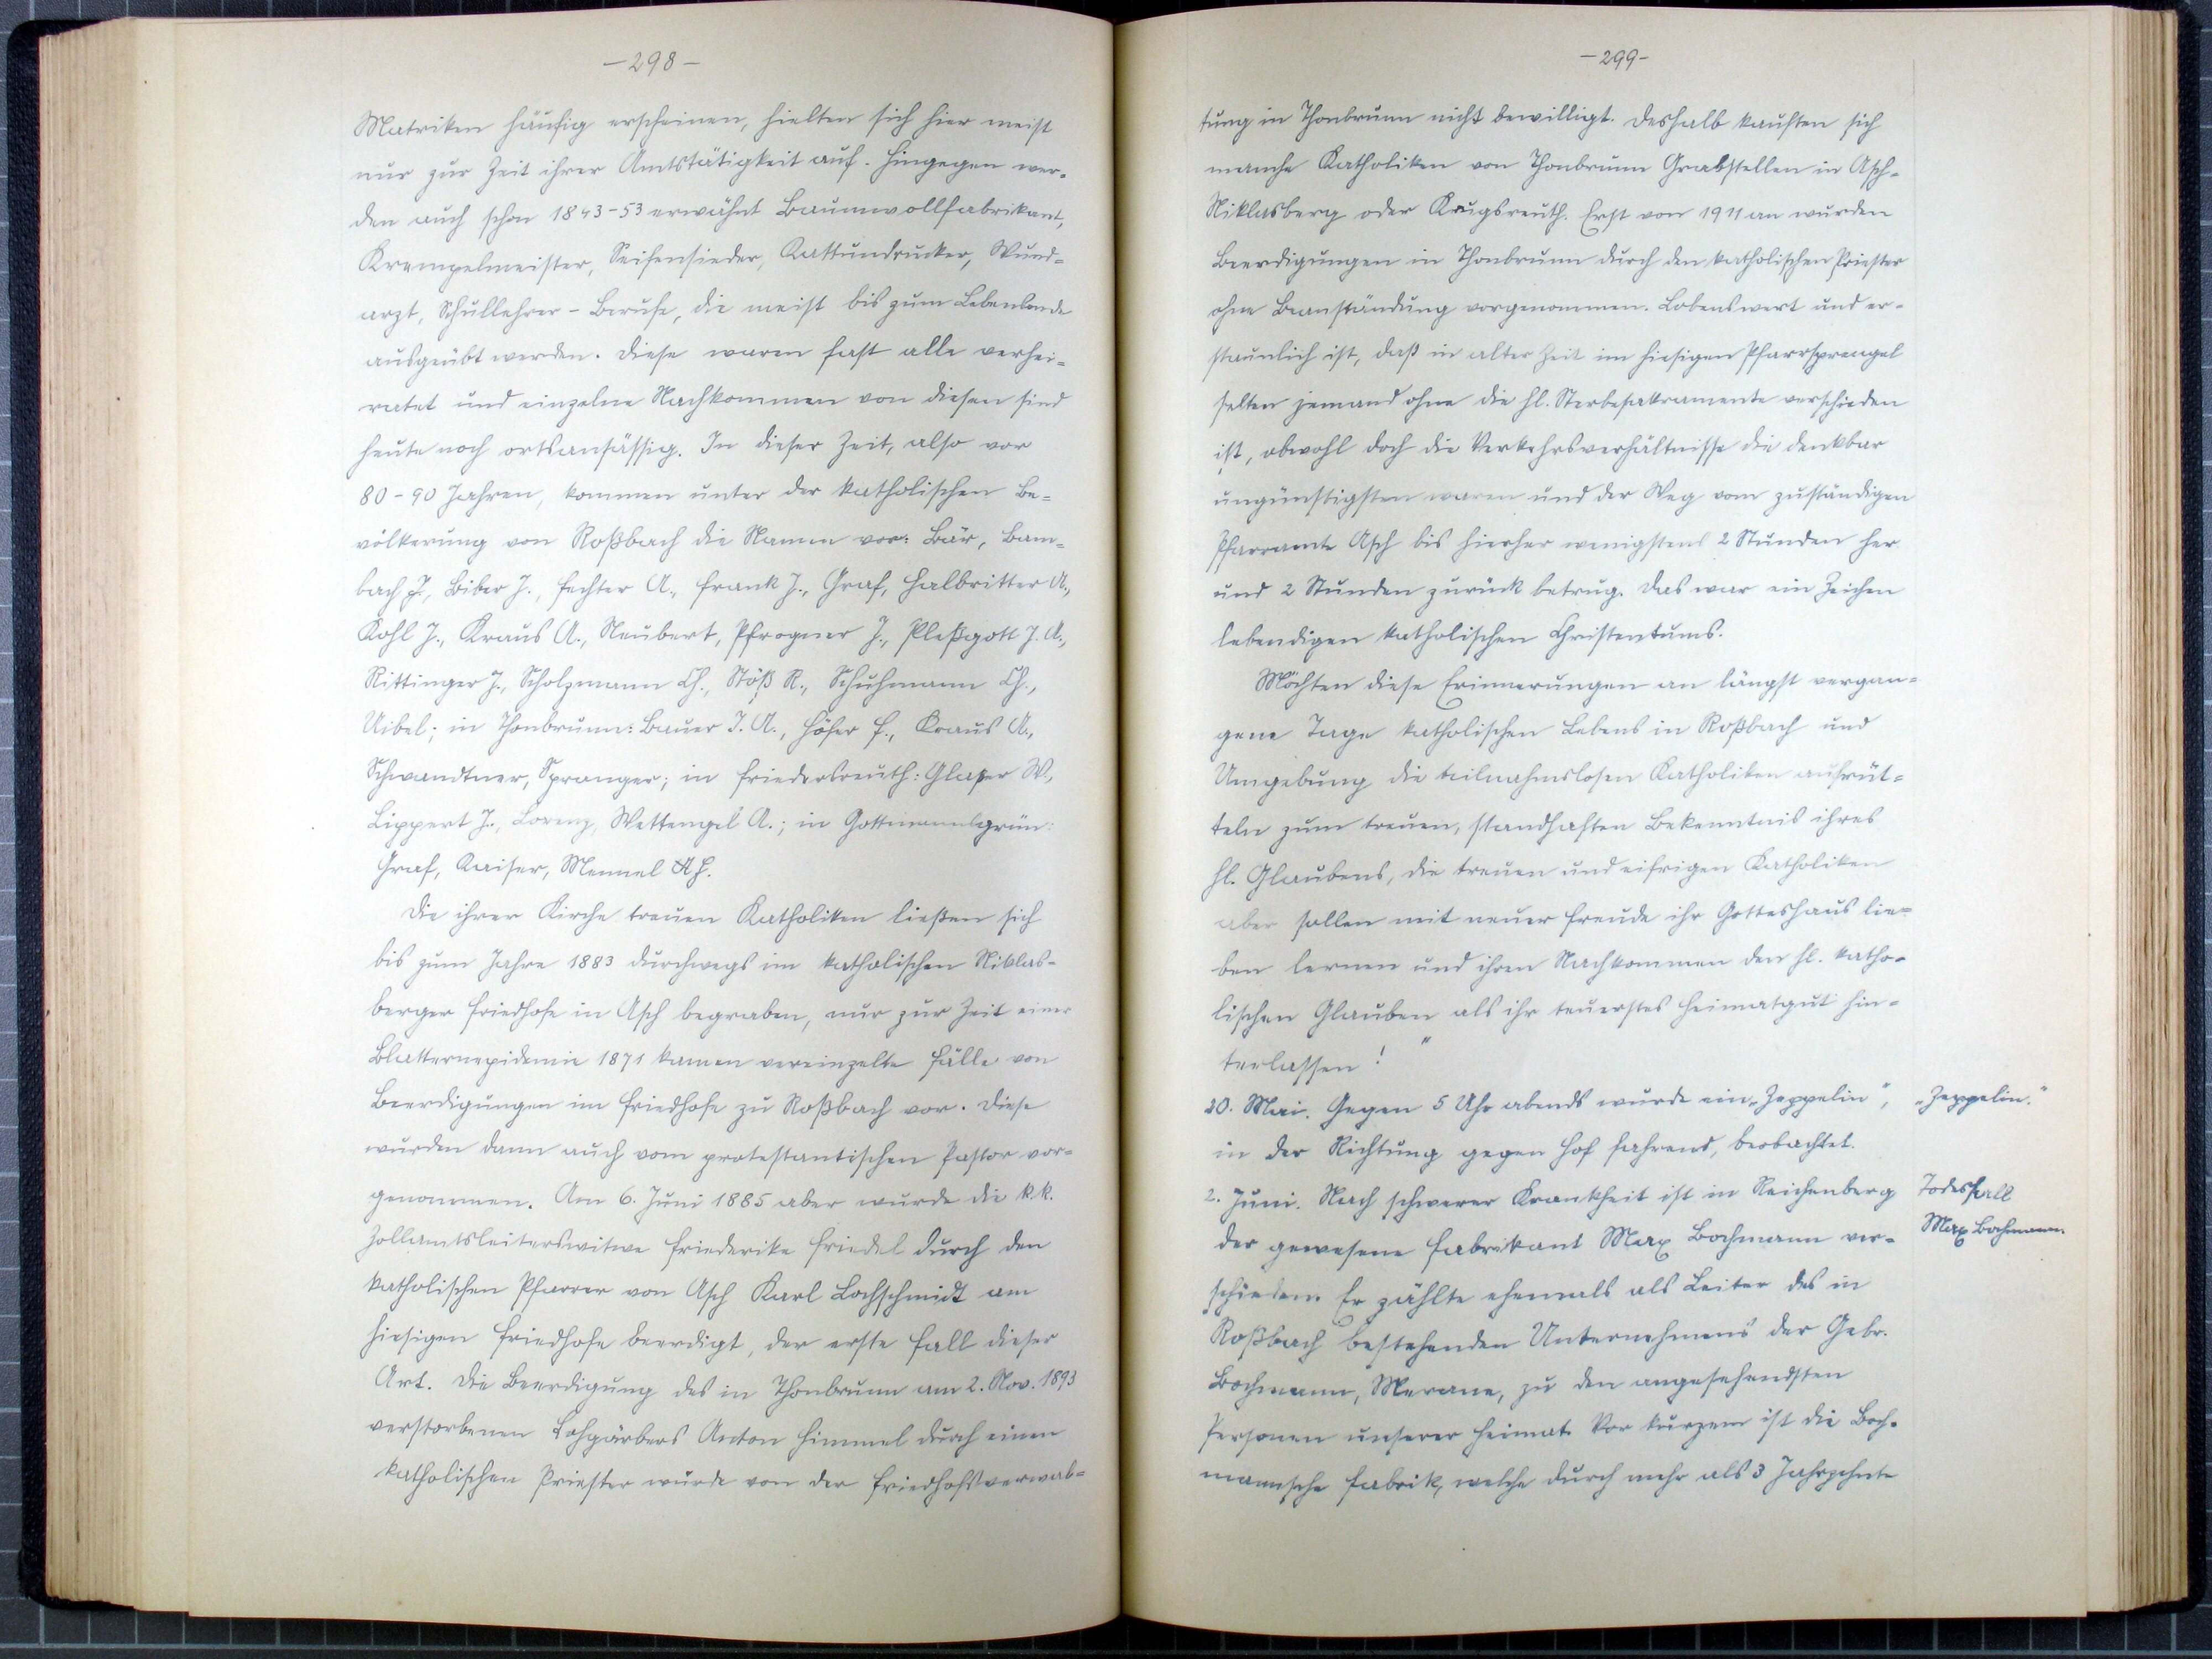 -298-
Matriken häufig erscheinen, hielten sich hier meist
nur zur Zeit ihrer Amtstätigkeit auf. Hingegen wer-
den auch schon 1843-53 erwähnt Baumwollfabrikant,
Krempelmeister, Seifensieder, Kattundrucker, Wund-
arzt, Schullehrer - Berufe, die meist bis zum Lebensende
ausgeübt werden. Diese waren fast alle verhei-
ratet und einzelne Nachkommen von diesen sind
heute noch ortsansässig. In dieser Zeit, also vor
80-90 Jahren, kommen unter der katholischen Be-
völkerung von Roßbach die Namen vor: Bär, Bam-
bach J., Biber J., Fechter A., Frank J., Graf, Halbritter A.,
Kohl J., Kraus A., Neubert, Pfrogner J., Pleßgott J. A.,
Rittinger J., Scholzmann Ch., Stöß R., Schuhmann Ch.,
Uibel; in Thonbrunn: Bauer J. A., Höfer F., Kraus A.,
Schwandtner, Spranger; in Friedersreuth: Glaßer W.,
Lippert J., Lorenz, Wettengel A.; in Gottmannsgrün:
Graf, Kaiser, Mennel
Die ihrer Kirche treuen Katholiken ließen sich
bis zum Jahre 1883 durchwegs im katholischen Niklas-
berger Friedhofe in Asch begraben, nur zur Zeit einer
Blatternepidemie 1871 kamen vereinzelte Fälle von
Beerdigungen im Friedhofe zu Roßbach vor. Diese
wurden dann auch vom protestantischen Pastor vor-
genommen. Am 6. Juni 1885 aber wurde die k.k.
Zollamtsleiterswitwe Friederike Friedel durch den
katholischen Pfarrer von Asch Karl Lochschmidt am
hiesigen Friedhofe beerdigt, der erste Fall dieser
Art. Die Beerdigung des in Thonbrunn am 2. Nov. 1893
verstorbenen Lohgärbers Anton Himmel durch einen
katholischen Priester wurde von der Friedhofsverwal-
-299-
tung in Thonbrunn nicht bewilligt. Deshalb kauften sich
manche Katholiken von Thonbrunn Grabstellen in Asch-
Niklasberg oder Krugsreuth. Erst von 1911 an wurden
Beerdigungen in Thonbrunn durch den katholischen Priester
ohne Beanständung vorgenommen. Lobenswert und er-
staunlich ist, daß in alter Zeit im hiesigen Pfarrsprengel
selten jemand ohne die hl. Sterbesakramente verschieden
ist, obwohl doch die Verkehrsverhältnisse die denkbar
ungünstigsten waren und der Weg vom zuständigen
Pfarramte Asch bis hierher wenigstens 2 Stunden her
und 2 Stunden zurück betrug. Das war ein Zeichen
lebendigen katholischen Christentums.
Möchten diese Erinnerungen an längst vergan-
gene Tage katholischen Lebens in Roßbach und
Umgebung die teilnahmslosen Katholiken aufrüt-
teln zum treuen, standhaften Bekenntnis ihres
hl. Glaubens, die treuen und eifrigen Katholiken
aber sollen mit neuer Freude ihr Gotteshaus lie-
ben lernen und ihren Nachkommen den hl. katho-
lischen Glauben als ihr teuerstes Heimatgut hin-
terlassen!"
20. Mai. Gegen 5 Uhr abends wurde ein „Zeppelin",
„Zeppelin."
in der Richtung gegen Hof fahrend, beobachtet.
2. Juni. Nach schwerer Krankheit ist in Reichenberg
Todesfall
der gewesene Fabrikant Max Bochmann ver-
Max Bochmann.
schieden. Er zählte ehemals als Leiter des in
Roßbach bestehenden Unternehmens der Gebr.
Bochmann, Merane, zu den angesehendsten
Personen unserer Heimat. Vor kurzem ist die Boch-
mannsche Fabrik, welche durch mehr als 3 Jahrzehnte